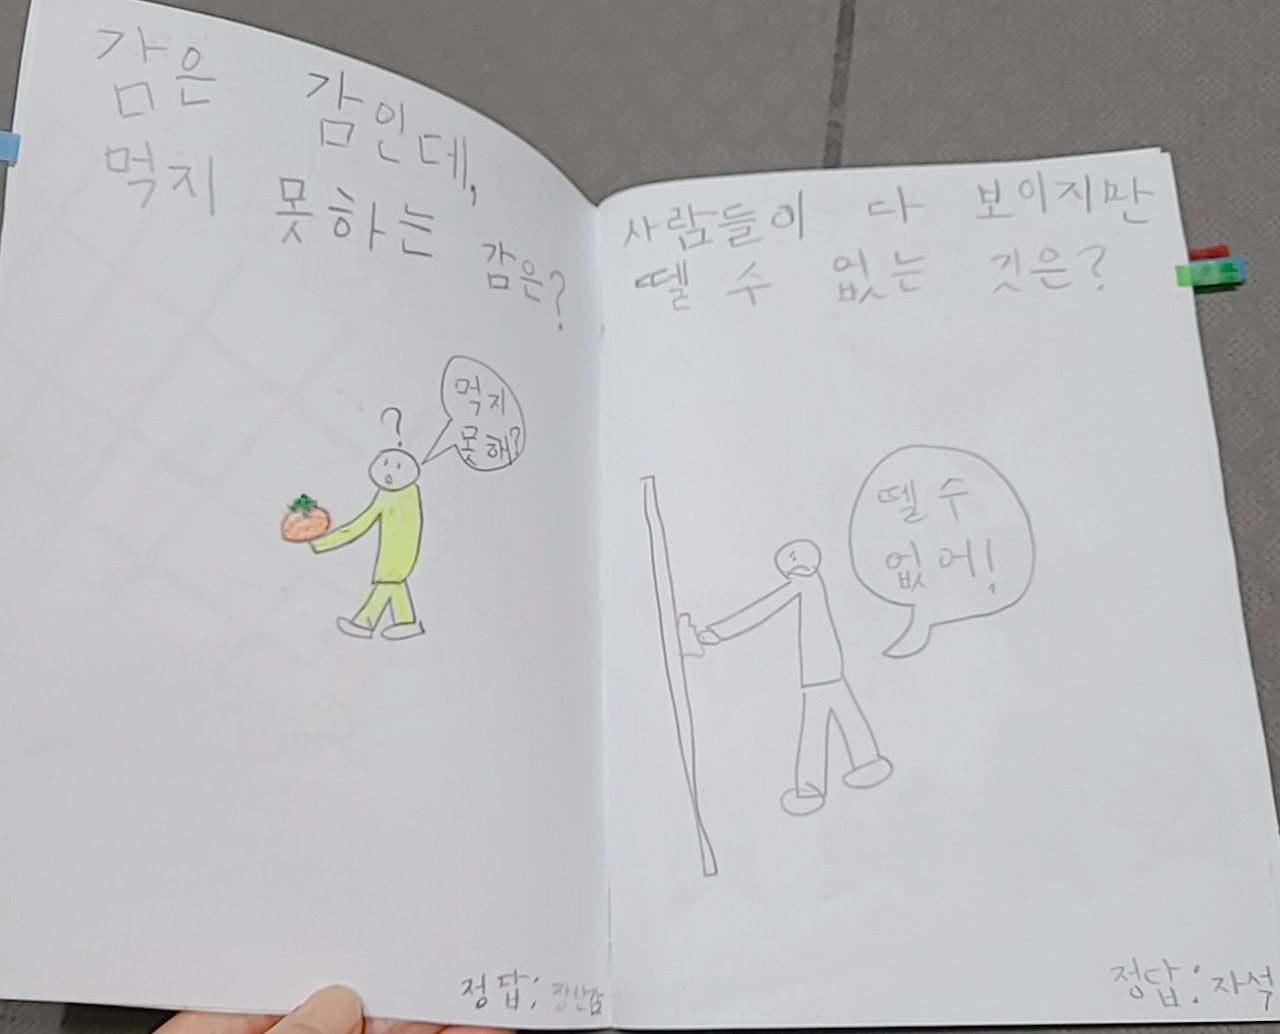 감은 감인데,
먹지 못하는 감은?
?
먹지
못해?
정답: 장난감
사람들이 다 보이지만
뗄 수 없는 것은?
뗄 수
없어!
정답: 자석